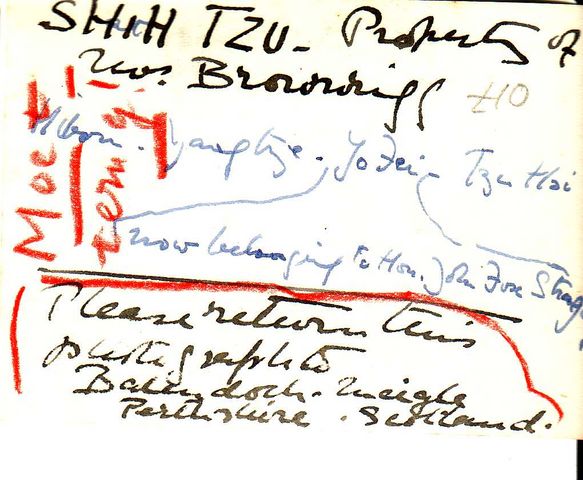 SHIH TZU - Property of
Mrs. Brownrigg
Hibou. Yangtze. Yo Fei. Tzu Hsi
now belonging to Hon. John Fox
Please return this
photograph to
Meigle
Perthshire. Scotland.